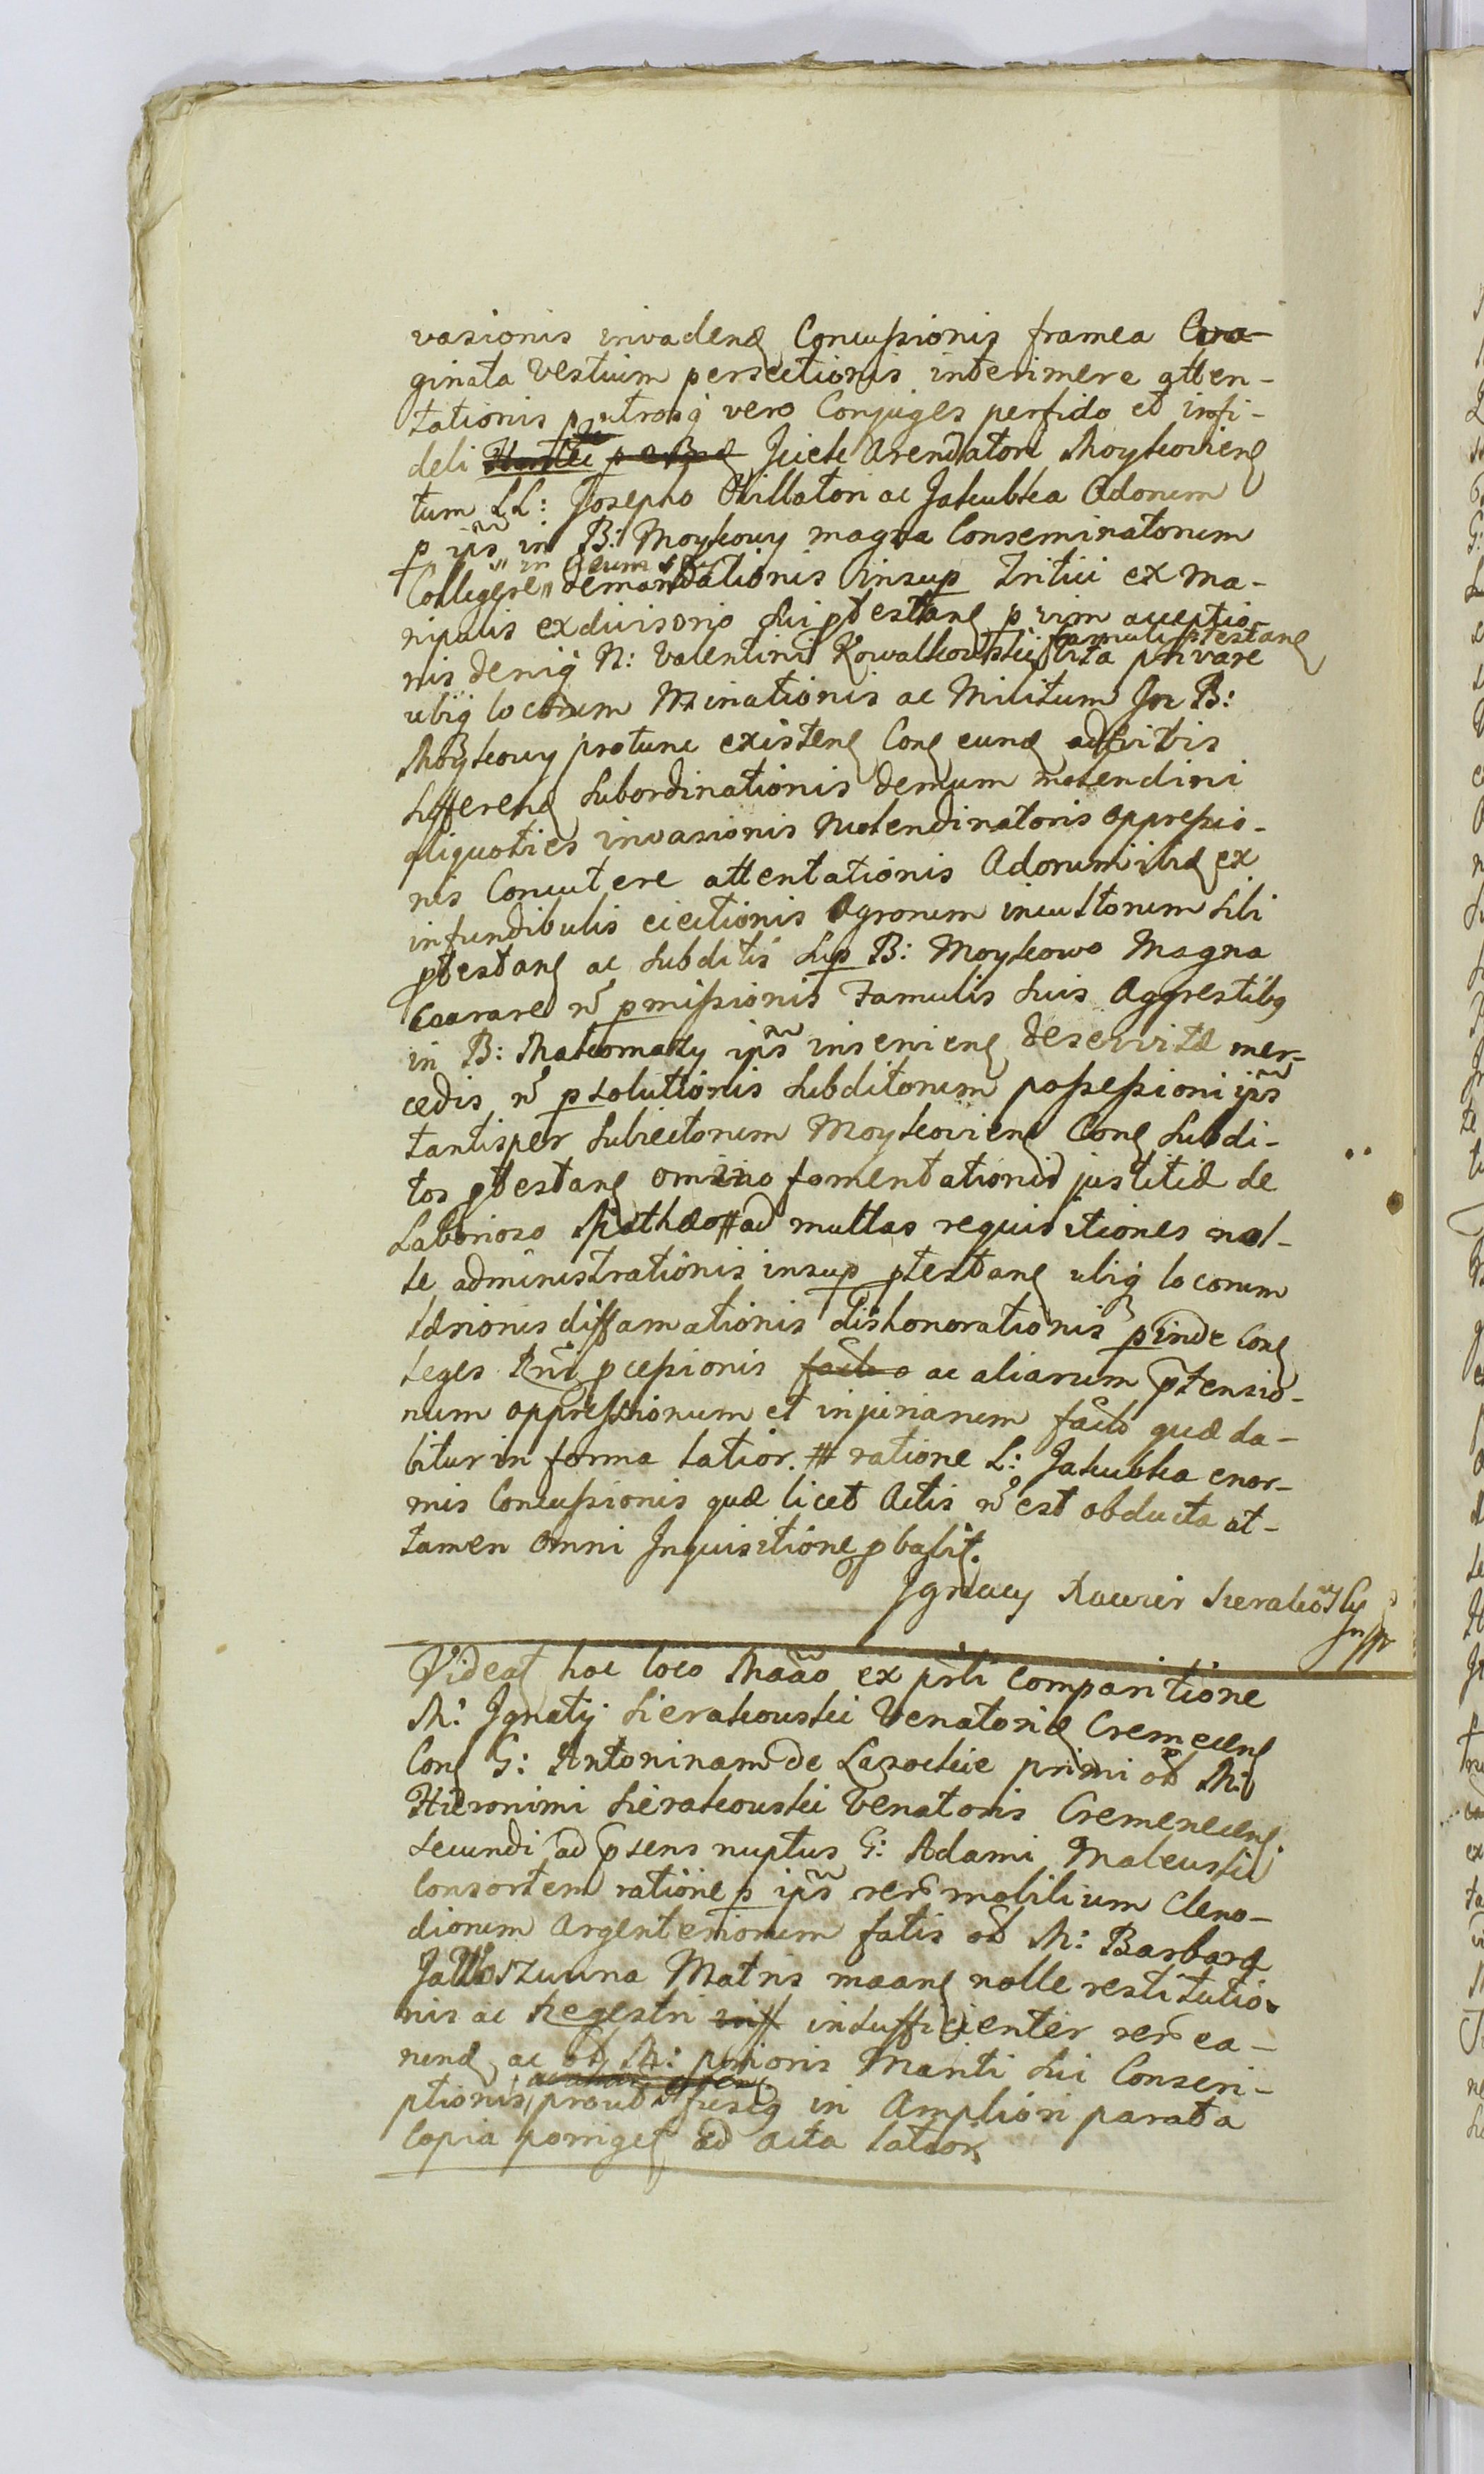 vasionis invadend Concussionis framea Eva-
ginata Vestium persectionis interimere atten-
tationis p utrosq vero Conjuges perfido et infi-
deli Jicek Arendatori Moykoviens
tum LL: Josepho Stillatori ac Jakubka Adorum
p ips in B: Moykowy magna Conseminatorum
Colligere demandationis insup Tritici ex ma-
nipulis exdivisorio sui ptestans p vim acceptio-
nis deniq N: Valentini Kowalkowskii famuli ptestans vita privare
ubiq locorum Minationis ac Militum in B:
Moykowy protunc existens Cons eund adscitis
sufferend subordinationis demum molendini
aliquoties invasionis Molendinatoris oppressio-
nis Concutere attentationis Adorum ibid ex
infundibulis eiectionis Agrorum incultorum sibi
ptestans ac subditis sup B: Moykowo Magna
Exarare n pmissionis Famulis suis Aggrestibg
in B: Makomazy ips inseniens deservitæ mer-
cedis n psolutionis subditorum possessioni ips
tantisper subiectorum Moykoviens Cons subdi-
tos ptestans omnino fomentationis justitiæ de
Laborioso Mathæo # ad multas requisitiones nol-
le administrationis insup ptestans ubiq locorum
læsionis diffamationis dishonorationis pinde Cons
leges Rni pcessionis facto ac aliarum ptensio-
num oppressionum et injuriarum facto quæ da-
bitur in forma latior. # ratione L: Jakubka enor-
mis Concussionis quæ licet Actis n est obducta at-
tamen omni Inquisitione pbabit.
Ignacy Xawier Sierakowski
mpp
Videat hoc loco Maao ex prli comparitione
M: Ignatij Sierakowski Venatorid Cremecens
Cons G: Antoninam de Lasockie primi od M:
Hieronimi Sierakowski Venatoris Cremenecens
secundi ad psens nuptus G: Adami Maleuski
Consortem ratione p ips rer mobilium Cleno-
diorum Argenteriorum fatis od M: Barbara
Jalbrzuwna Matris maans nolle restitutio-
nis ac Regestri insufficienter rer ea-
rund ac od M: prioris Mariti sui Conscri-
ptionis, prout fuseg in Ampliori parata
Copia porriget ad Acta latior